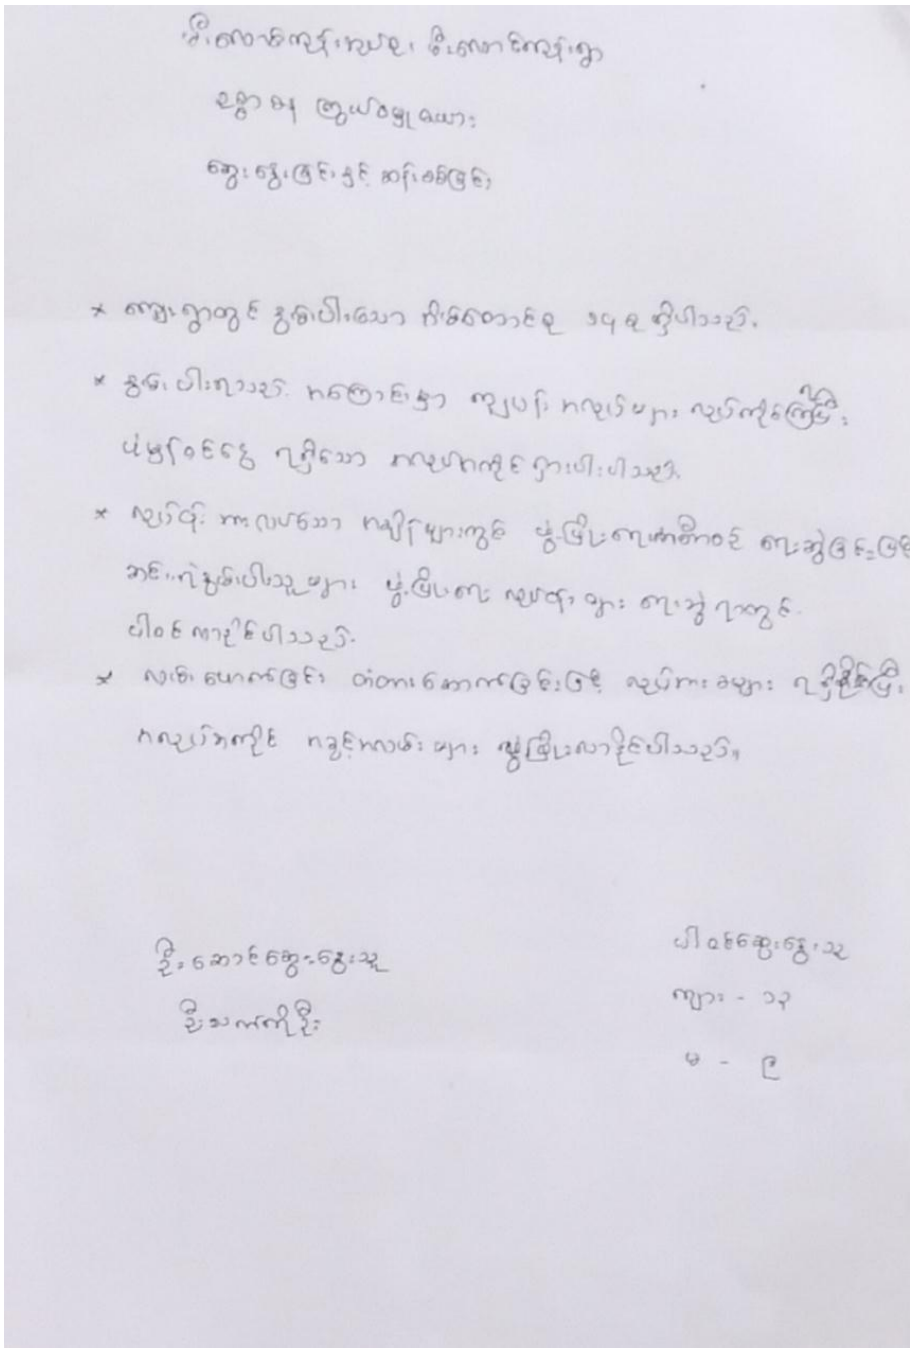 မီးလောင်ကုန်းအုပ်စု၊ မီးလောင်ကုန်းရွာ
ဥစ္စာဓန ကြွယ်ဝမှုဇယား
ဆွေးနွေးခြင်းနှင့် ဆန်းစစ်ခြင်း
* ကျေးရွာတွင် နွမ်းပါးသော အိမ်ထောင်စု ၁၄ စု ရှိပါသည်။
* နွမ်းပါးရသည့် အကြောင်းမှာ ကျပန်း အလုပ်များ လုပ်ကိုင်ကြရပြီး
ပုံမှန်ဝင်ငွေ ရရှိသော အလုပ်အကိုင် ရှားပါးပါသည်။
* လုပ်ငန်း အားလပ်သော အချိန်များတွင် ဖွံ့ဖြိုးရေးအစီအစဉ် ရေးဆွဲခြင်းဖြင့်
ဆင်းရဲနွမ်းပါးသူများ ဖွံ့ဖြိုးရေး လုပ်ငန်းများ ရေးဆွဲရာတွင်
ပါဝင်လာနိုင်ပါသည်။
* လမ်းဖောက်ခြင်း တံတားဆောက်ခြင်းဖြင့် လုပ်အားခများ ရရှိနိုင်ပြီး
အလုပ်အကိုင် အခွင့်အလမ်းများ ဖွံ့ဖြိုးလာနိုင်ပါသည်။
ဦးဆောင်ဆွေးနွေးသူ
ဦးသက်ကိုဦး
ပါဝင်ဆွေးနွေးသူ
ကျား - ၁၃
မ - ၉